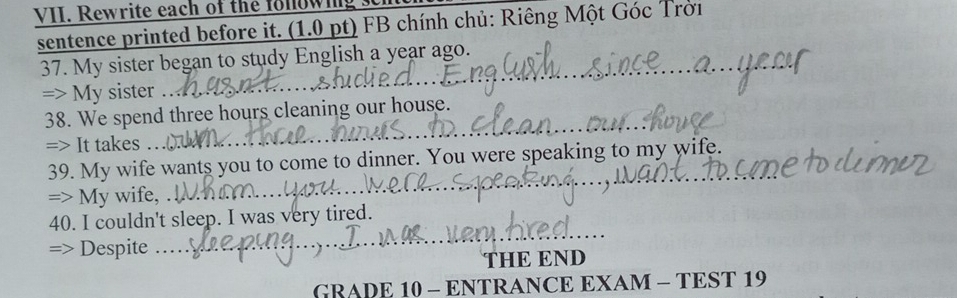 VII. Rewrite each of the following
sentence printed before it. (1.0 pt) FB chính chủ: Riêng Một Góc Trời
37. My sister began to study English a year ago.
=> My sister ..hasn't...studied...English...since...a...year
38. We spend three hours cleaning our house.
=> It takes ...own...three hours...to...clean...our...house
39. My wife wants you to come to dinner. You were speaking to my wife.
=> My wife, .whom...you...were...speaking...., want to come to dinner
40. I couldn't sleep. I was very tired.
=> Despite ....sleeping...,..I...was...very tired......
THE END
GRADE 10 – ENTRANCE EXAM – TEST 19